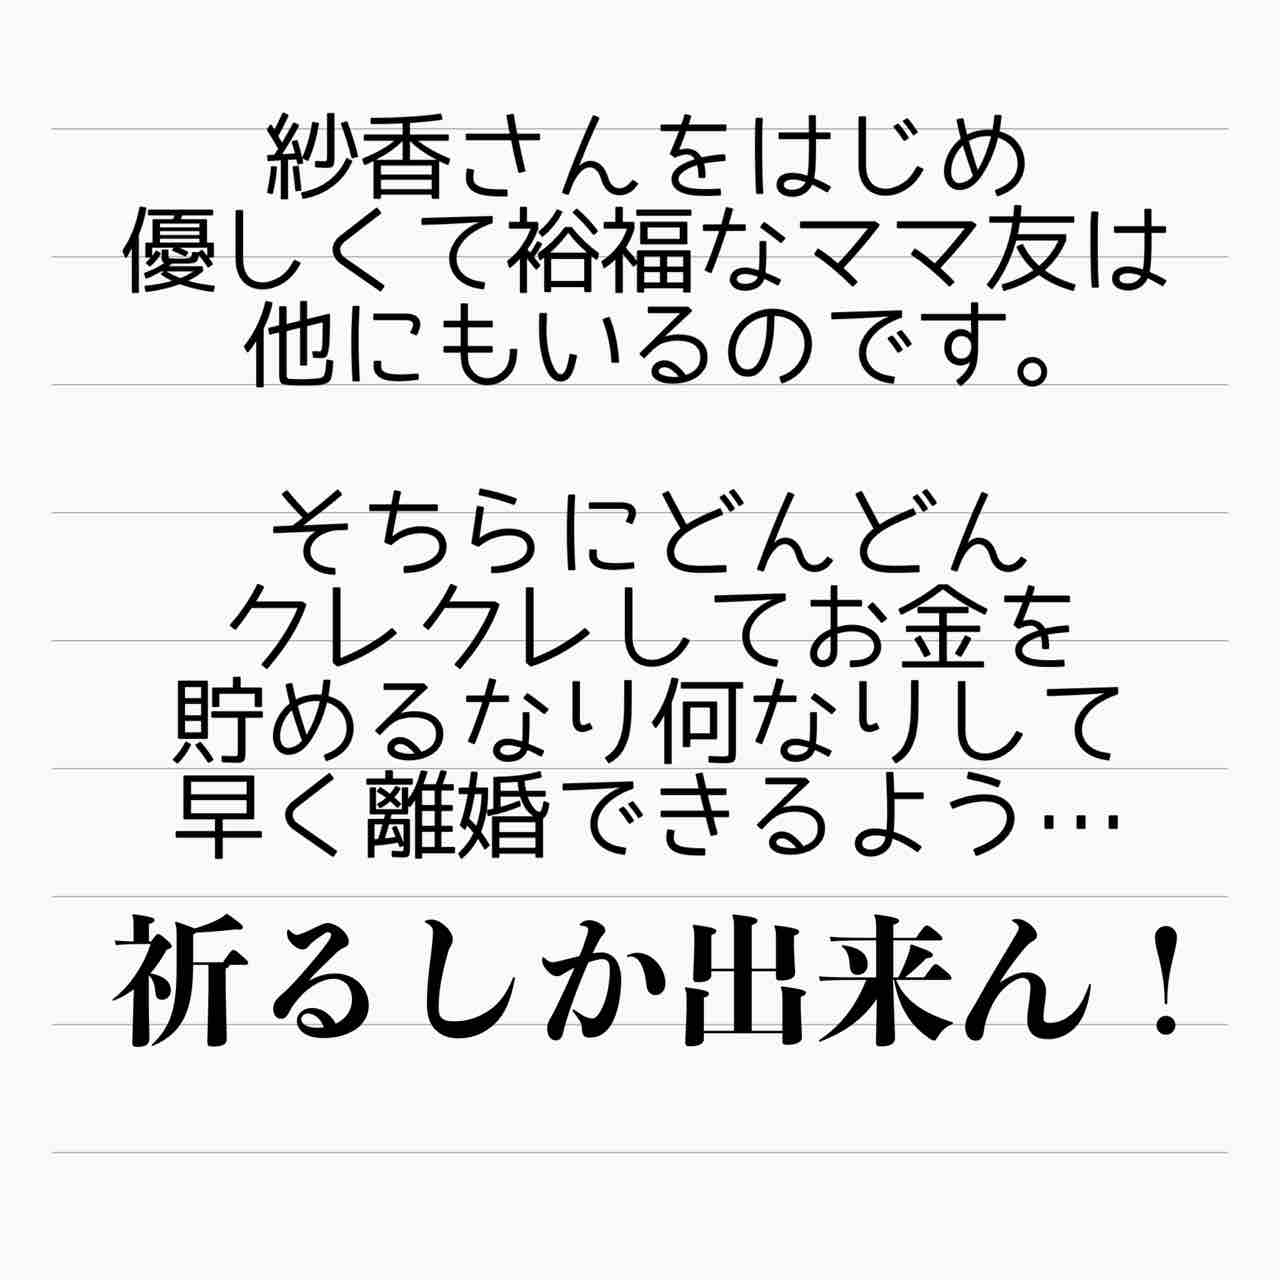 紗香さんをはじめ
優しくて裕福なママ友は
他にもいるのです。
そちらにどんどん
クレクレしてお金を
貯めるなり何なりして
早く離婚できるよう…
祈るしか出来ん！